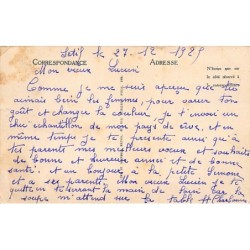 Sétif le 27-12 1929
CORRESPONDANCE ADRESSE
N'écrire que sur
le côté réservé à
Mon vieux Lucien
Comme je me suis aperçu que tu
aimais bien les femmes, pour varier ton
goût et changer ta couleur, je t'envoi un
chic échantillon de mon pays de rêve, et en
même temps je te présente ainsi qu'à
tes parents mes meilleurs voeux et souhaits
de bonne et heureuse année et de bonne
santé. et un bonjour à la petite Simone
et a ses parents. Mon vieux Lucien je te
quitte en te serrant la main de loin car la
soupe m'attend sur la table